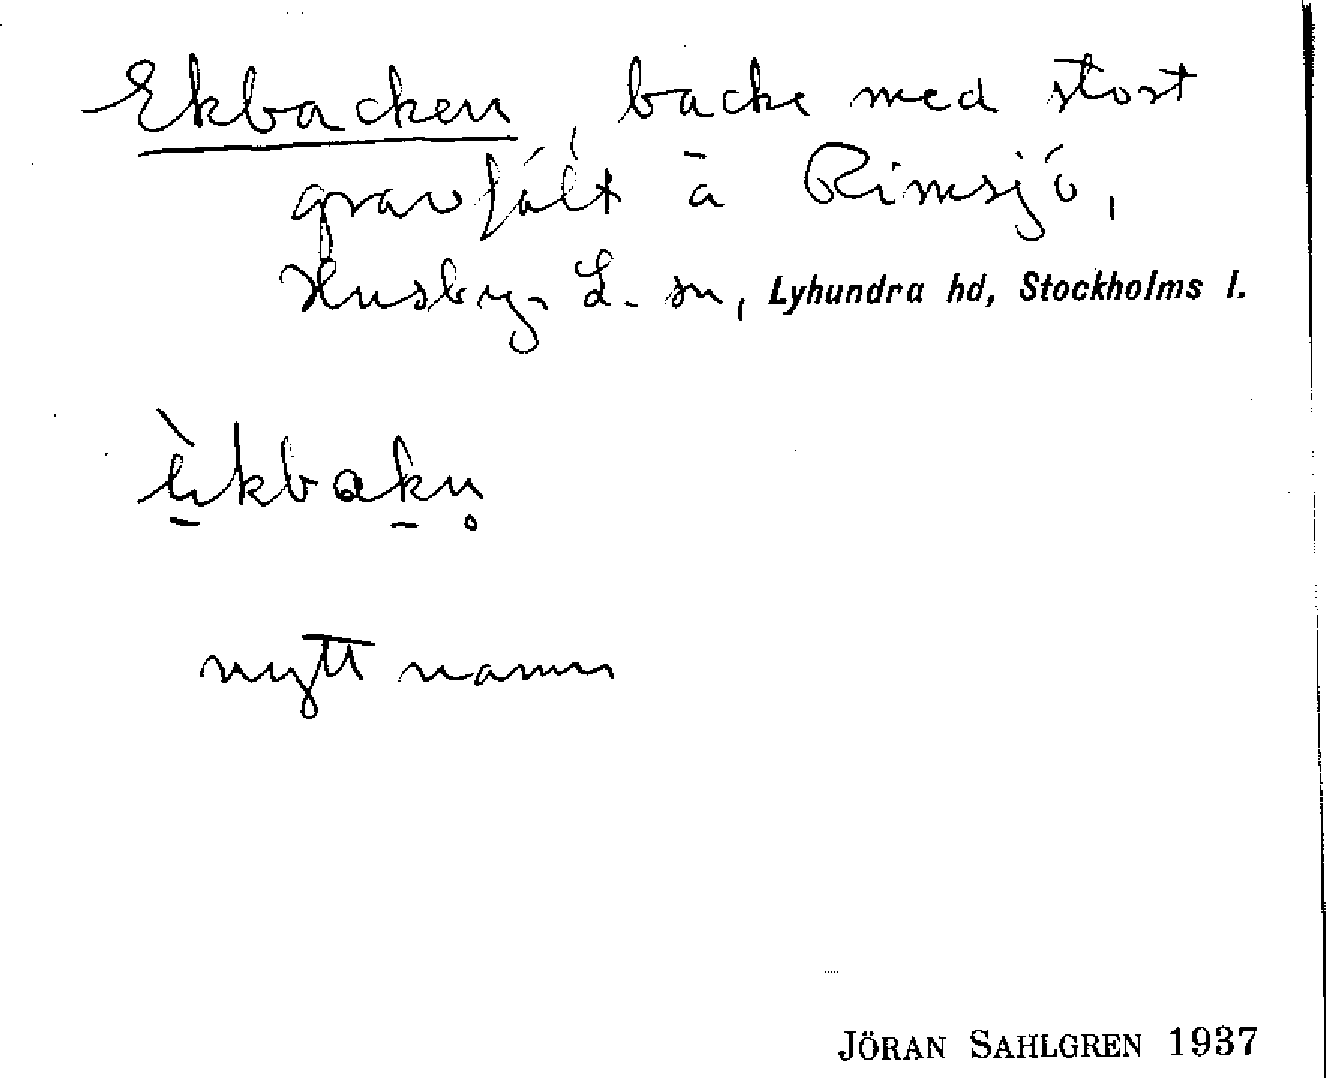 Ekbacken, backe med stort
gravfält å Rimsjö,
Husby-L. sn, Lyhundra hd, Stockholms l.
nytt namn
JÖRAN SAHLGREN 1937